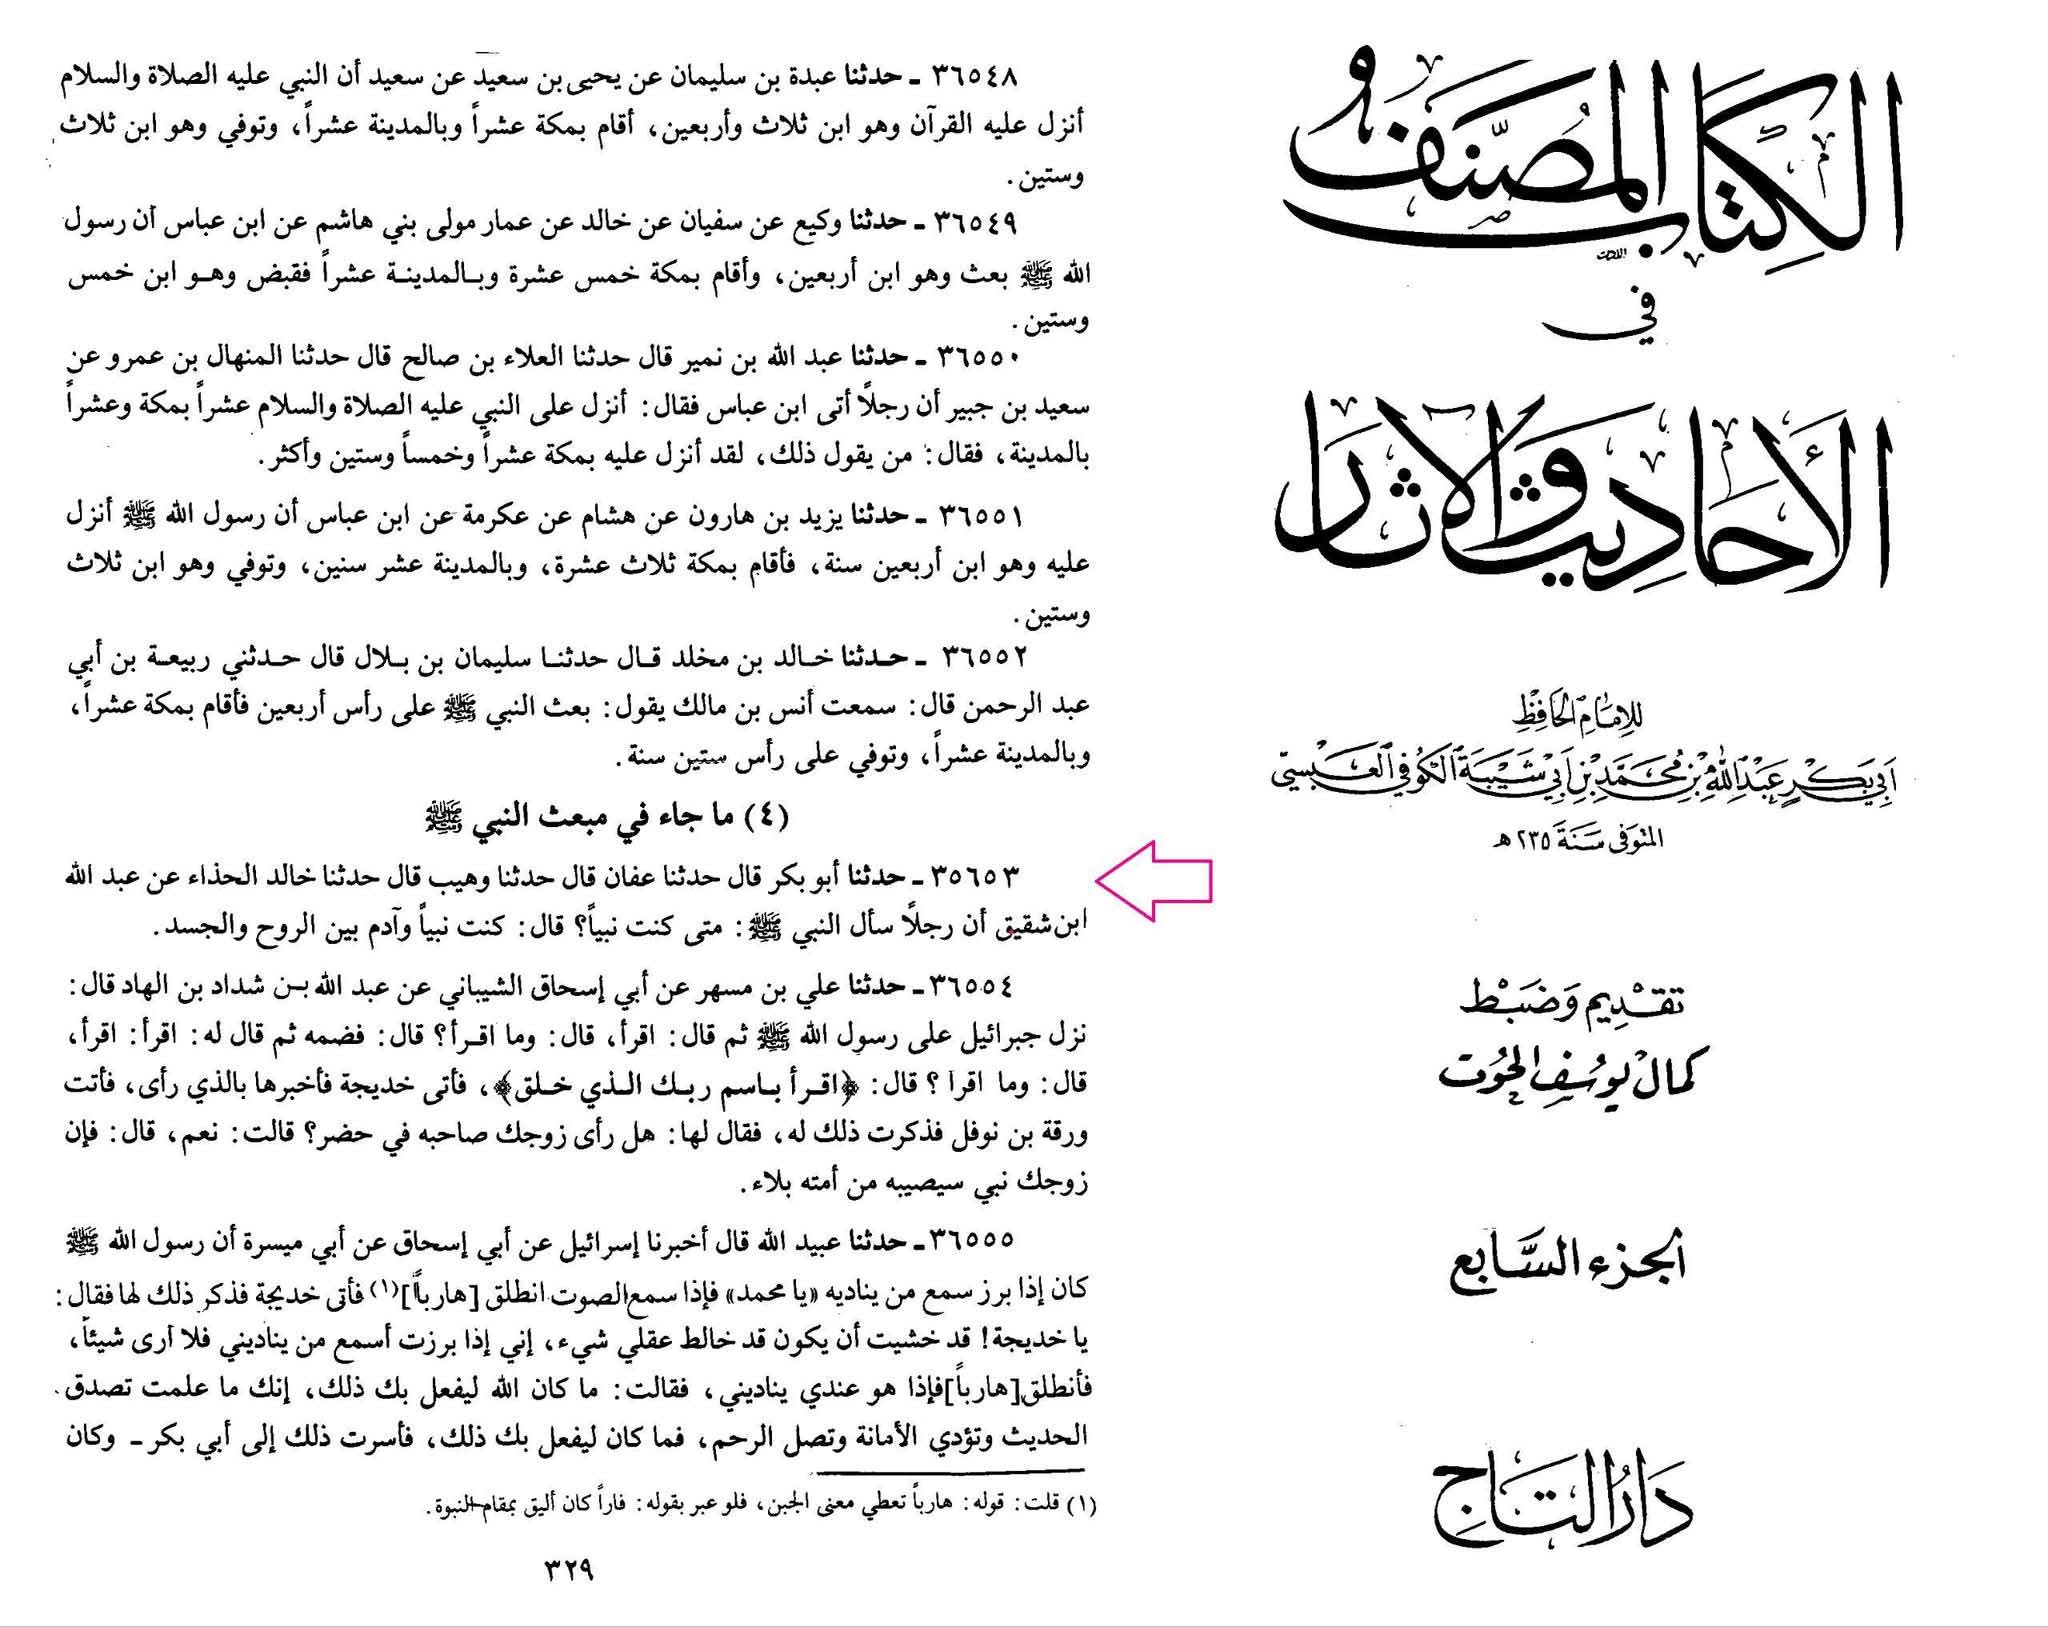 الكتاب المصنف
في
الأحاديث والآثار
للإمام الحافظ
أبي بكر عبد الله بن محمد بن أبي شيبة الكوفي العبسي
المتوفى سنة ٢٣٥ هـ
تقديم وضبط
كمال يوسف الحوت
الجزء السابع
دار التاج
٣٦٥٤٨ ـ حدثنا عبدة بن سليمان عن يحيى بن سعيد عن سعيد أن النبي عليه الصلاة والسلام
أنزل عليه القرآن وهو ابن ثلاث وأربعين، أقام بمكة عشراً وبالمدينة عشراً، وتوفي وهو ابن ثلاث
وستين.
٣٦٥٤٩ ـ حدثنا وكيع عن سفيان عن خالد عن عمار مولى بني هاشم عن ابن عباس أن رسول
الله ﷺ بعث وهو ابن أربعين، وأقام بمكة خمس عشرة وبالمدينة عشراً فقبض وهو ابن خمس
وستين.
٣٦٥٥٠ ـ حدثنا عبد الله بن نمير قال حدثنا العلاء بن صالح قال حدثنا المنهال بن عمرو عن
سعيد بن جبير أن رجلاً أتى ابن عباس فقال: أنزل على النبي عليه الصلاة والسلام عشراً بمكة وعشراً
بالمدينة، فقال: من يقول ذلك، لقد أنزل عليه بمكة عشراً وخمساً وستين وأكثر.
٣٦٥٥١ ـ حدثنا يزيد بن هارون عن هشام عن عكرمة عن ابن عباس أن رسول الله ﷺ أنزل
عليه وهو ابن أربعين سنة، فأقام بمكة ثلاث عشرة، وبالمدينة عشر سنين، وتوفي وهو ابن ثلاث
وستين.
٣٦٥٥٢ ـ حدثنا خالد بن مخلد قال حدثنا سليمان بن بلال قال حدثني ربيعة بن أبي
عبد الرحمن قال: سمعت أنس بن مالك يقول: بعث النبي ﷺ على رأس أربعين فأقام بمكة عشراً،
وبالمدينة عشراً، وتوفي على رأس ستين سنة.
(٤) ما جاء في مبعث النبي ﷺ
٣٥٦٥٣ ـ حدثنا أبو بكر قال حدثنا عفان قال حدثنا وهيب قال حدثنا خالد الحذاء عن عبد الله
ابن شقيق أن رجلاً سأل النبي ﷺ: متى كنت نبياً؟ قال: كنت نبياً وآدم بين الروح والجسد.
٣٦٥٥٤ ـ حدثنا علي بن مسهر عن أبي إسحاق الشيباني عن عبد الله بن شداد بن الهاد قال:
نزل جبرائيل على رسول الله ﷺ ثم قال: اقرأ، قال: وما اقرأ؟ قال: فضمه ثم قال له: اقرأ: اقرأ،
قال: وما اقرأ ؟ قال: ﴿اقرأ باسم ربك الذي خلق﴾، فأتى خديجة فأخبرها بالذي رأى، فأتت
ورقة بن نوفل فذكرت ذلك له، فقال لها: هل رأى زوجك صاحبه في حضر؟ قالت: نعم، قال: فإن
زوجك نبي سيصيبه من أمته بلاء.
٣٦٥٥٥ ـ حدثنا عبيد الله قال أخبرنا إسرائيل عن أبي إسحاق عن أبي ميسرة أن رسول الله ﷺ
كان إذا برز سمع من يناديه «يا محمد» فإذا سمع الصوت انطلق [هارباً](١) فأتى خديجة فذكر ذلك لها فقال:
يا خديجة! قد خشيت أن يكون قد خالط عقلي شيء، إني إذا برزت أسمع من يناديني فلا أرى شيئاً،
فأنطلق[هارباً]فإذا هو عندي يناديني، فقالت: ما كان الله ليفعل بك ذلك، إنك ما علمت تصدق
الحديث وتؤدي الأمانة وتصل الرحم، فما كان ليفعل بك ذلك، فأسرت ذلك إلى أبي بكر ـ وكان
(١) قلت: قوله: هارباً تعطي معنى الجبن، فلو عبر بقوله: فاراً كان أليق بمقام النبوة.
٣٢٩